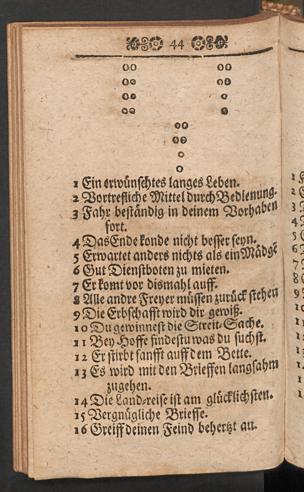 44
1 Ein erwünschtes langes Leben.
2 Vortrefliche Mittel durch Bedienung.
3 Fahr beständig in deinem Vorhaben
fort.
4 Das Ende konde nicht besser seyn.
5 Erwartet anders nichts als ein Mädge
6 Gut Dienstboten zu mieten.
7 Er komt vor dismahl auff.
8 Alle andre Freyer müssen zurück stehen
9 Die Erbschafft wird dir gewiß.
10 Du gewinnest die Streit-Sache.
11 Bey Hoffe findestu was du suchst.
12 Er stirbt sanfft auff dem Bette.
13 Es wird mit den Brieffen langsahm
zugehen.
14 Die Land-reise ist am glücklichsten.
15 Vergnügliche Brieffe.
16 Greiff deinen Feind behertzt an.